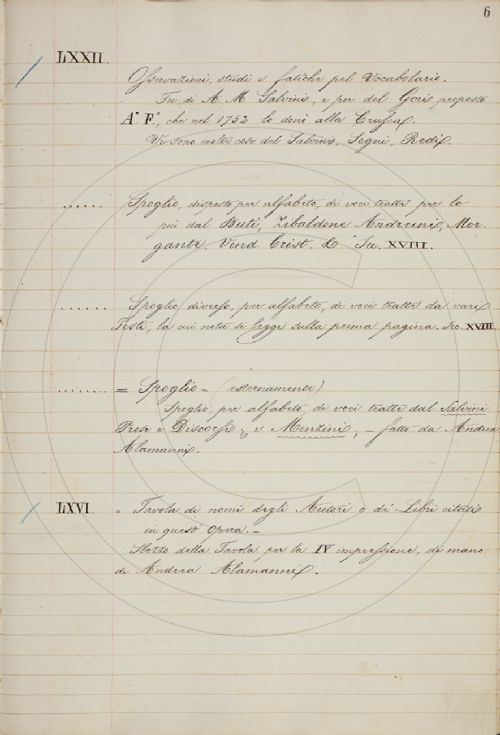 6
LXXII.
Osservazioni, studi e fatiche pel Vocabolario.
Fu di A. M. Salvini, e poi del Goris proposto
A. F., che nel 1752 lo donò alla Crusca.
Vi sono molte cose del Salvini, Segni, Redi.
...... Spoglio, disposto per alfabeto, di voci tratte per lo
più dal Buti, Zibaldone Andreini, Mor-
gante, Vend. Crist. Sec. XVIII.
....... Spoglio diverso, per alfabeto, di voci tratte da vari
Testi, la cui nota si legge sulla prima pagina. Sec. XVIII
........ = Spoglio = (esternamente)
Spoglio, per alfabeto, di voci tratte dal Salvini
Prose e Discorsi, e Menzini, – fatto da Andrea
Alamanni.
LXVI. = Tavola di nomi degli Autori o di Libri citati
in quest' opera. =
Sbozzo della Tavola per la IV impressione, di mano
di Andrea Alamanni.